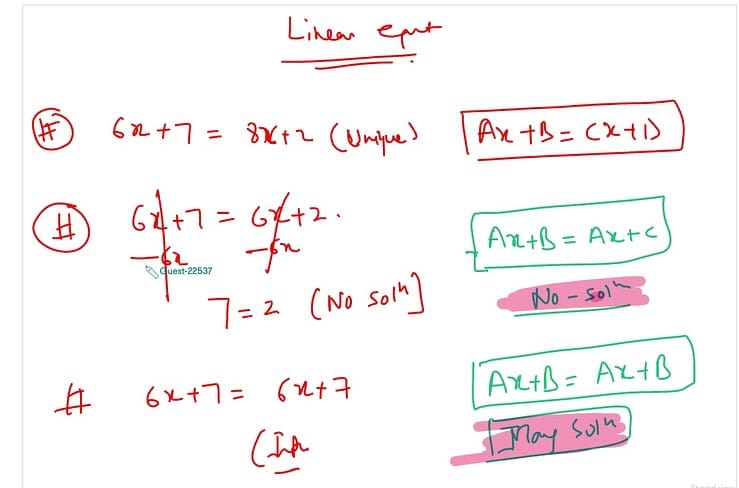 Linear eqnt
# 6x+7 = 8x+2 (Unique) Ax+B = Cx+D
# 6x+7 = 6x+2.
-6x -6x
Guest-22537
Ax+B = Ax+C
7=2 (No solⁿ) No-solⁿ
# 6x+7 = 6x+7 Ax+B = Ax+B
(In May Solⁿ